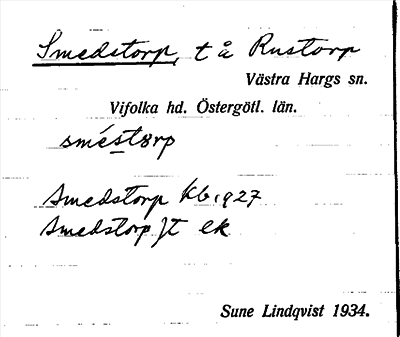 Smedstorp, t å Rustorp
Västra Hargs sn.
Vifolka hd. Östergötl. län.
sméstørp
Smedstorp Kb 1927
Smedstorp Jt ek
Sune Lindqvist 1934.